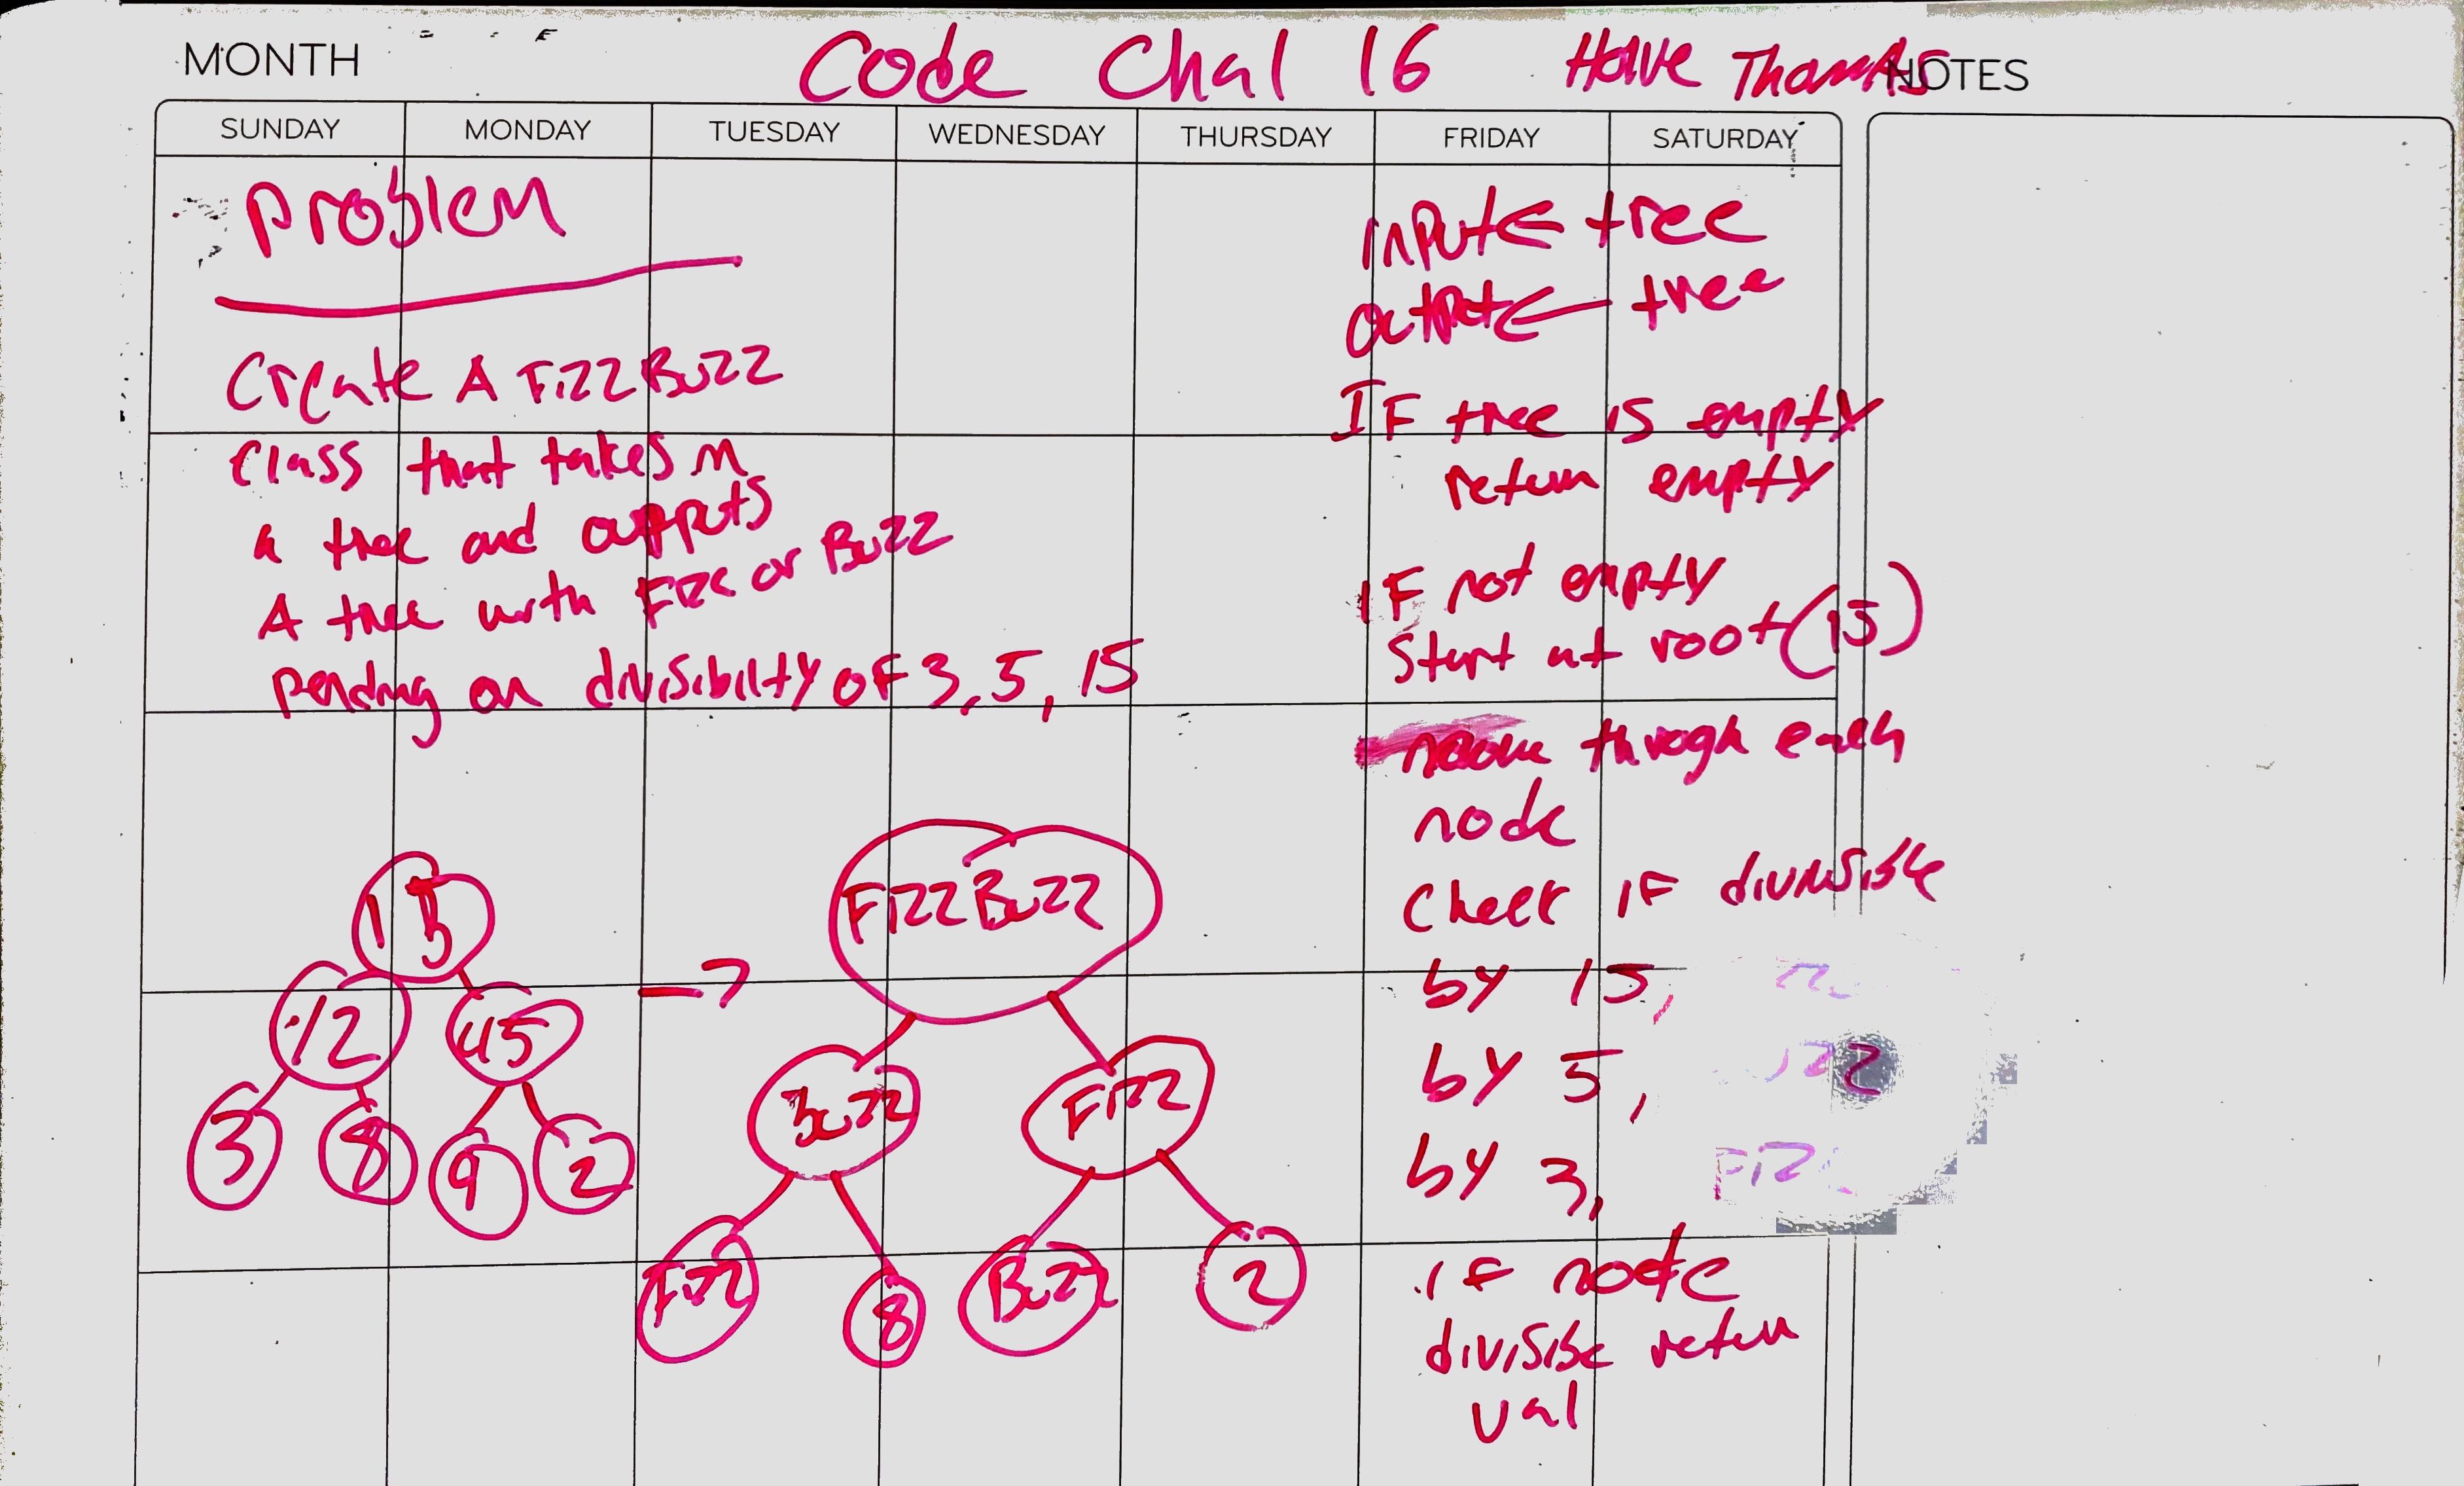 MONTH
Code Chal 16
NOTES
SUNDAY MONDAY TUESDAY WEDNESDAY THURSDAY FRIDAY SATURDAY
Problem
Create A FizzBuzz
Class that takes in
a tree and outputs
A tree with Fizz or Buzz
pending on divisibilty of 3, 5, 15
15
12 45
3 8 9 2
->
FizzBuzz
Buzz Fizz
Fizz 8 Buzz 2
input <- tree
output <- tree
IF tree is empty
return empty
IF not empty
Start at root (15)
move through each
node
Check IF divisible
by 15,
by 5,
by 3, Fiz
IF node
divisible return
val